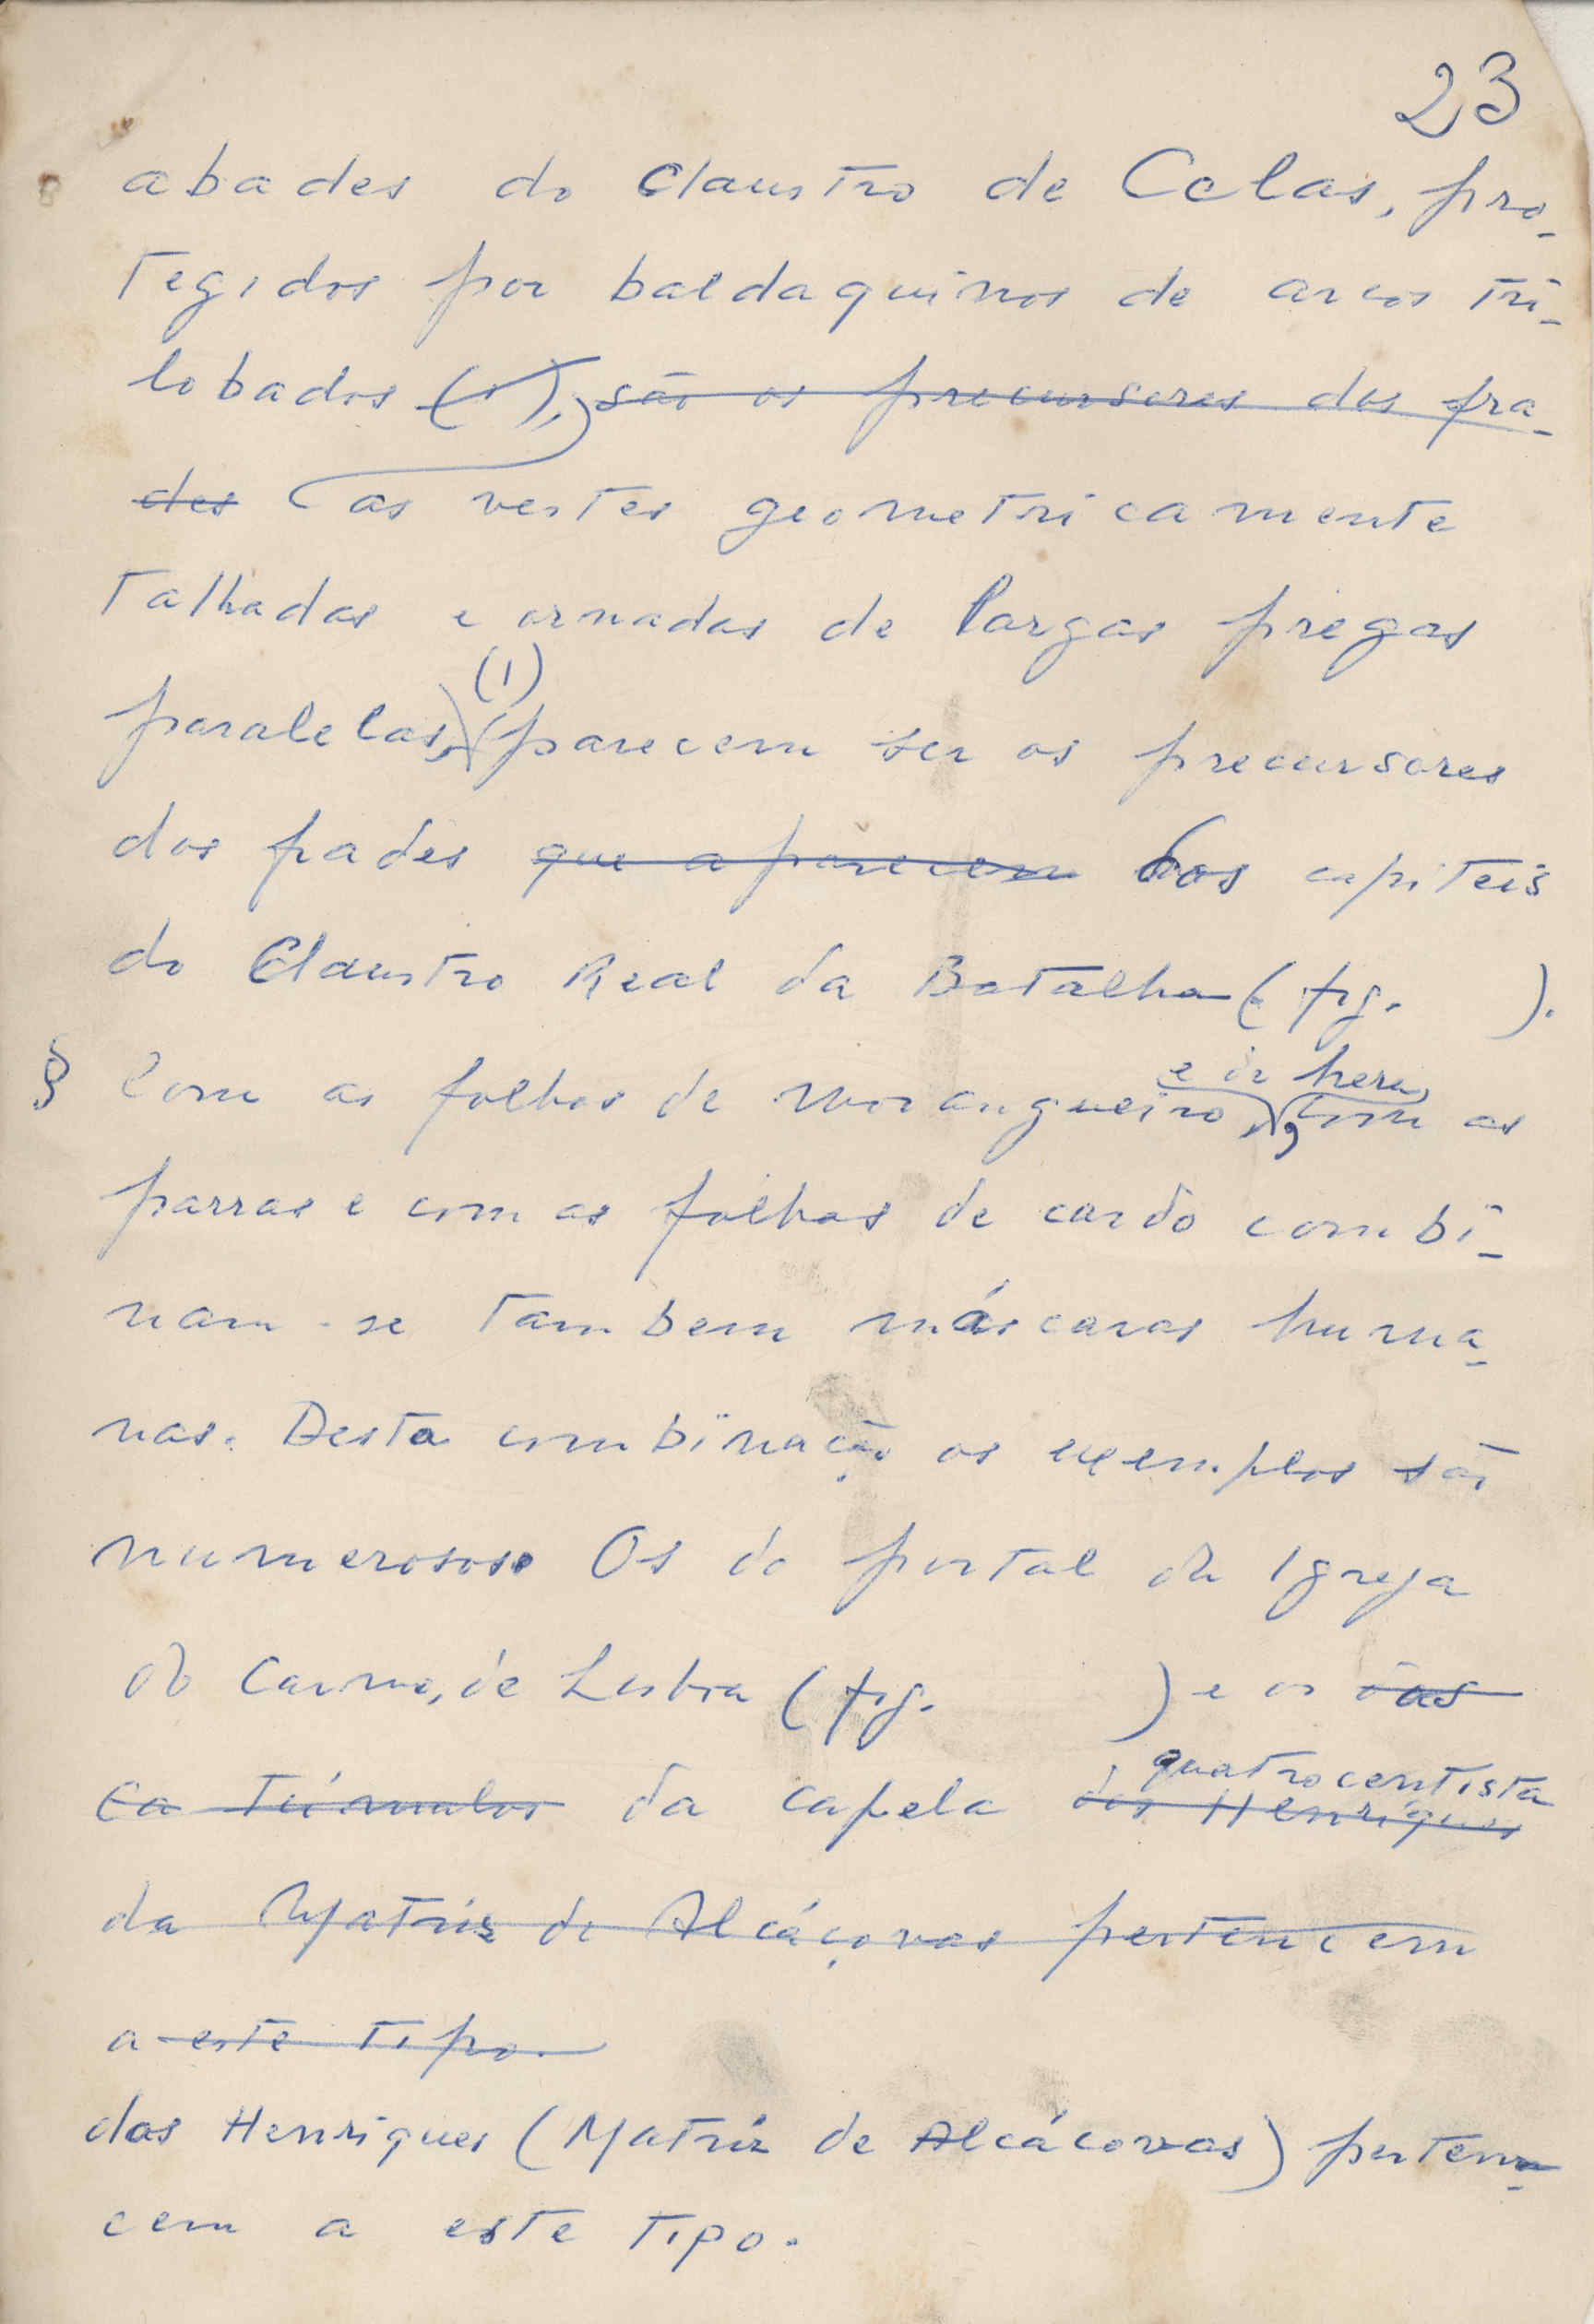 23
abades do Claustro de Celas, pro-
tegidos por baldaquinos de arcos tri-
lobados (1), são os precursores dos fra-
des as vestes geometricamente
talhadas e ornadas de largas pregas
(1)
paralelas, parecem ser os precursores
dos frades que aparecem nos capiteis
do Claustro Real da Batalha (fig. ).
e de hera
§ Com as folhas de morangueiro, com as
parras e com as folhas de cardo combi-
nam-se tambem máscaras huma-
nas. Desta combinação os exemplos são
numerosos. Os do portal da Igreja
do Carmo, de Lisboa (fig. ) e os das
quatrocentista
ca túmulos da capela dos Henriques
da Matriz de Alcáçovas pertencem
a este tipo.
dos Henriques (Matriz de Alcácovas) perten-
cem a este tipo.